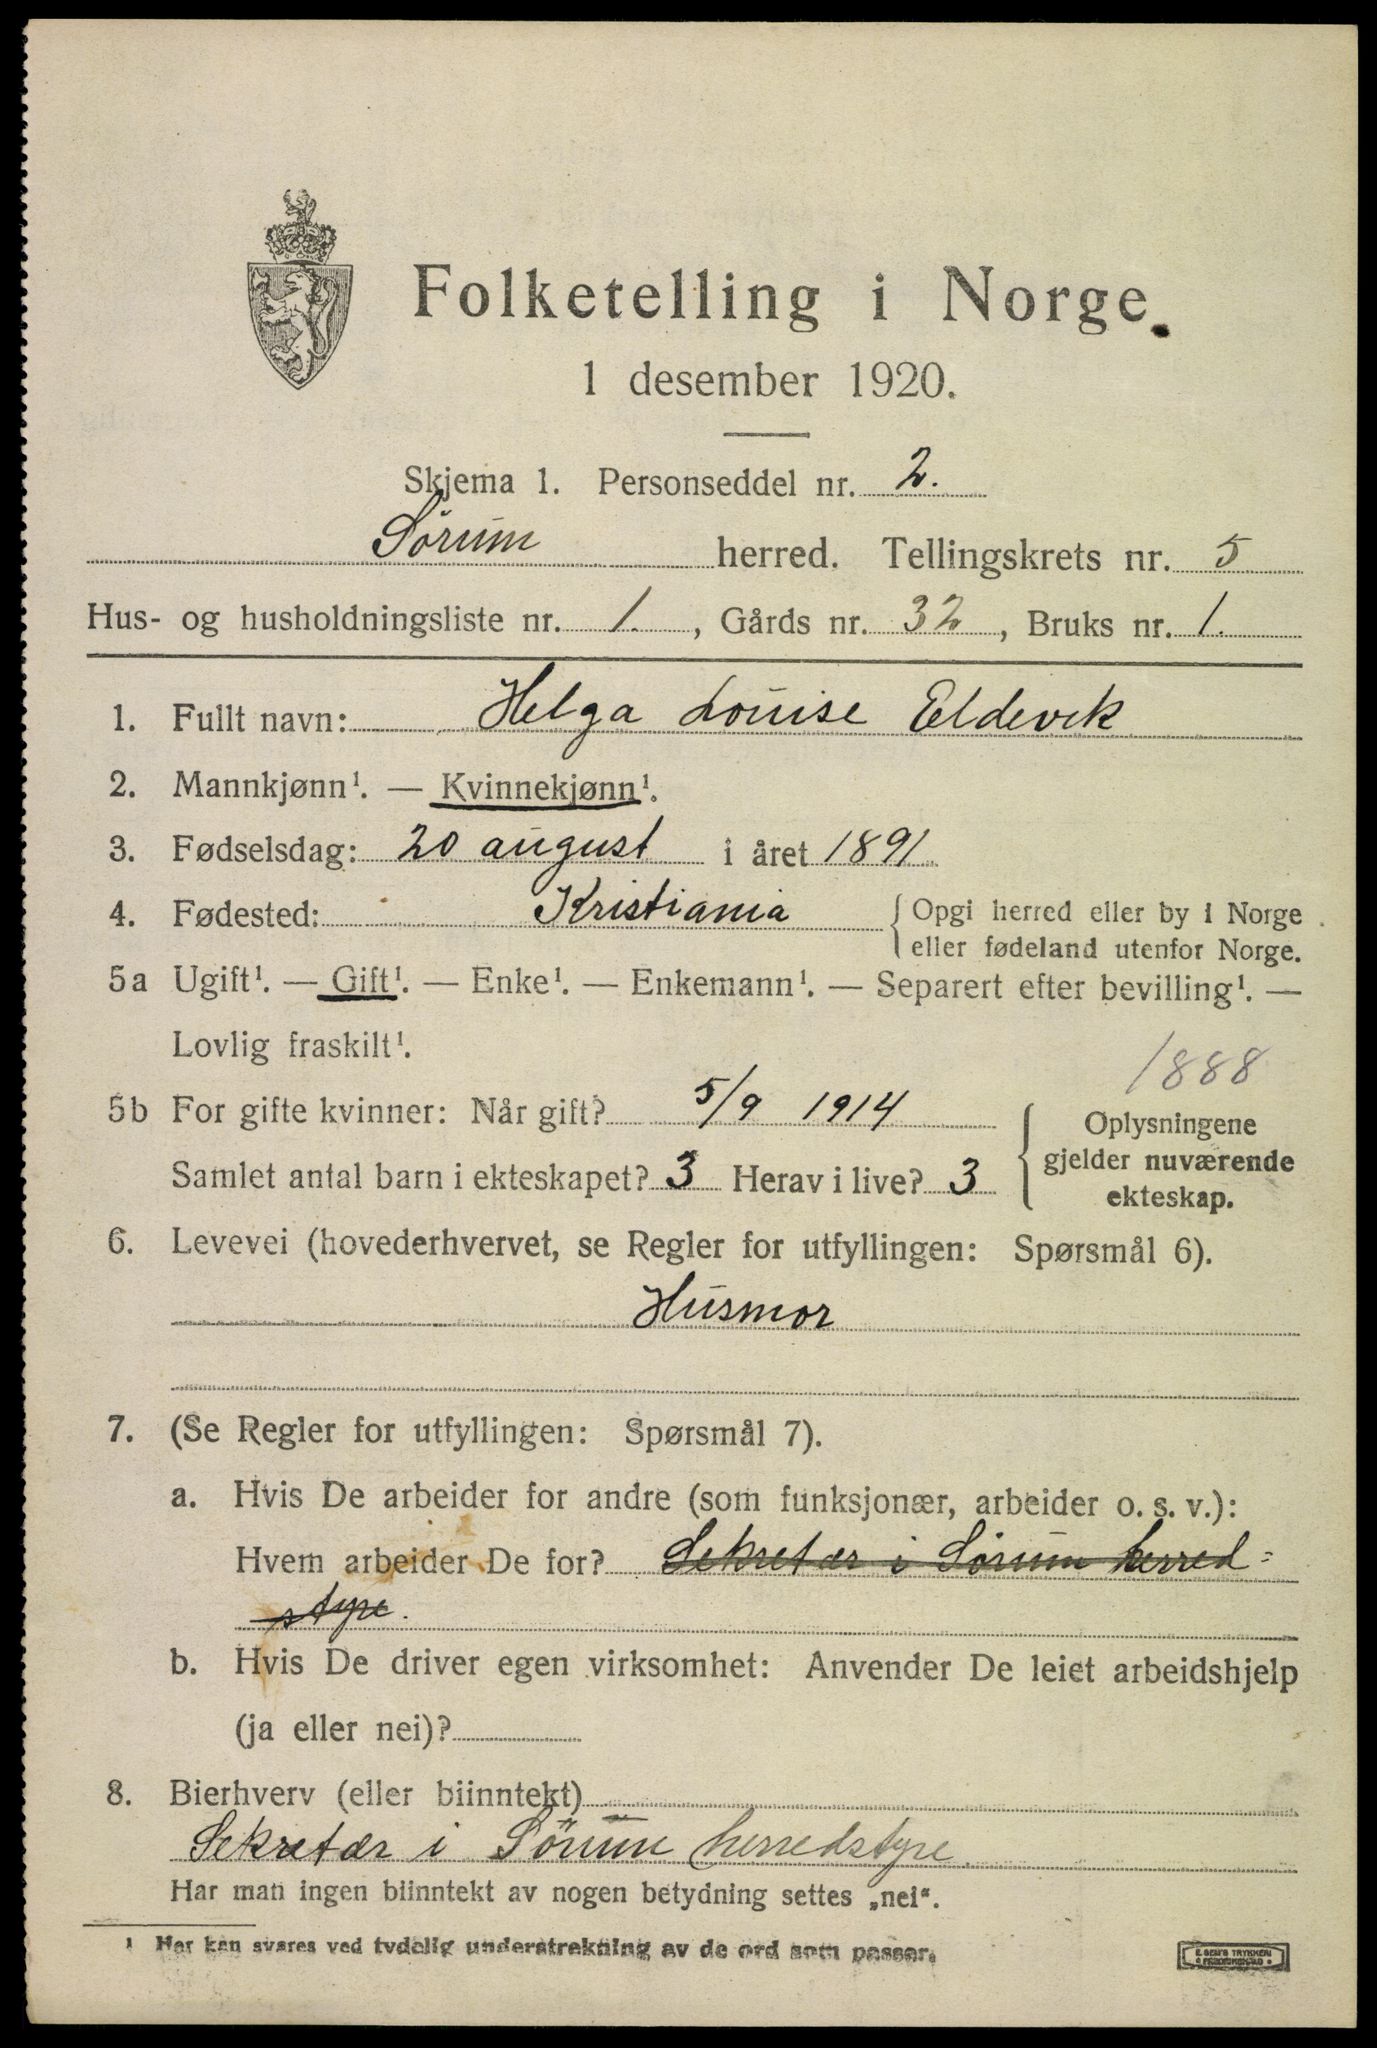 Folketelling i Norge
1 desember 1920.
Skjema 1. Personseddel nr. 2.
Sörum herred. Tellingskrets nr. 5
Hus- og husholdningsliste nr. 1., Gårds nr. 32, Bruks nr. 1.
1. Fullt navn: Helga Louise Eldevik
2. Mannkjønn¹. — Kvinnekjønn¹.
3. Fødselsdag: 20 august i året 1891
4. Fødested: Kristiania { Opgi herred eller by i Norge
eller fødeland utenfor Norge.
5a Ugift¹. — Gift¹. — Enke¹. — Enkemann¹. — Separert efter bevilling¹. —
Lovlig fraskilt¹.
1888
5b For gifte kvinner: Når gift? 5/9 1914
Samlet antal barn i ekteskapet? 3 Herav i live? 3
{ Oplysningene
gjelder nuværende
ekteskap.
6. Levevei (hovederhvervet, se Regler for utfyllingen: Spørsmål 6).
Husmor
7. (Se Regler for utfyllingen: Spørsmål 7).
a. Hvis De arbeider for andre (som funksjonær, arbeider o. s. v.):
Hvem arbeider De for? Sekretær i Sörum herred=
styre.
b. Hvis De driver egen virksomhet: Anvender De leiet arbeidshjelp
(ja eller nei)?
8. Bierhverv (eller biinntekt)
Sekretær i Sörum herredstyre
Har man ingen biinntekt av nogen betydning settes „nei“.
¹ Her kan svares ved tydelig understrekning av de ord som passer.